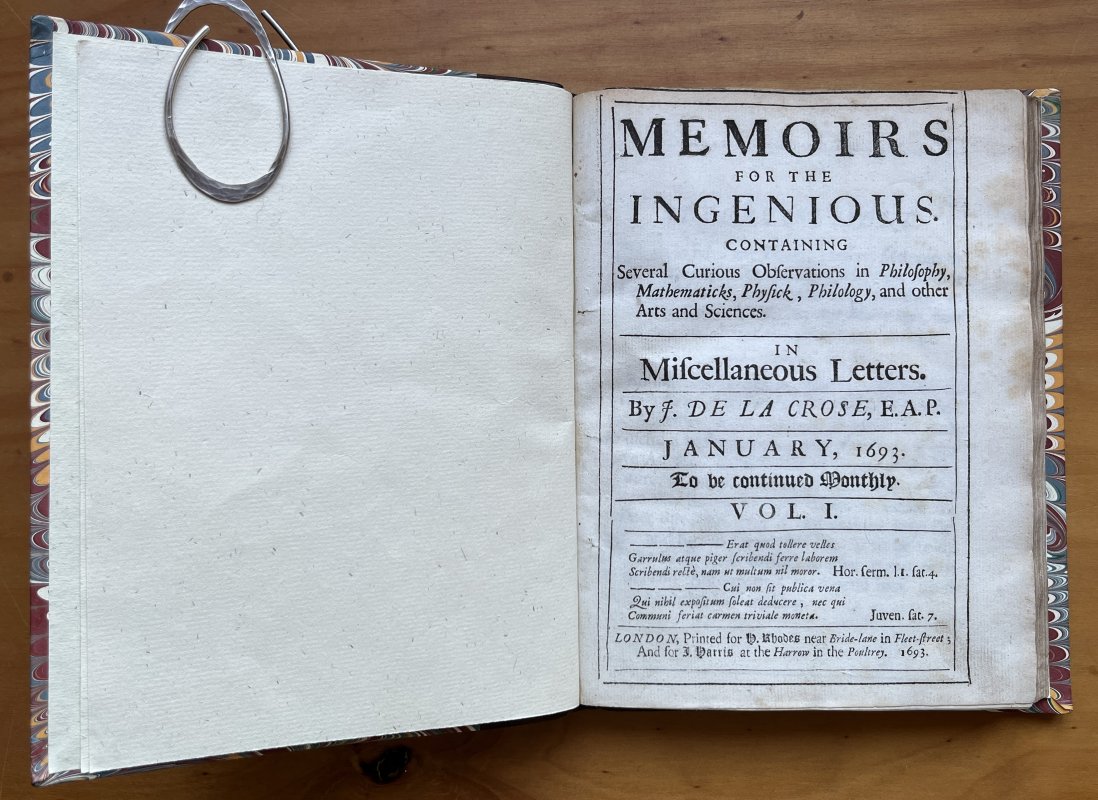 MEMOIRS
FOR THE
INGENIOUS.
CONTAINING
Several Curious Obſervations in Philoſophy,
Mathematicks, Phyſick, Philology, and other
Arts and Sciences.
IN
Miſcellaneous Letters.
By J. DE LA CROSE, E.A.P.
JANUARY, 1693.
To be continued Monthly.
VOL. I.
—— —— Erat quod tollere velles
Garrulus atque piger ſcribendi ferre laborem
Scribendi rectè, nam ut multum nil moror. Hor. ſerm. l.1. ſat.4.
—— —— Cui non ſit publica vena
Qui nihil expoſitum ſoleat deducere, nec qui
Communi feriat carmen triviale monetæ. Juven. ſat. 7.
LONDON, Printed for H. Rhodes near Bride-lane in Fleet-ſtreet;
And for J. Harris at the Harrow in the Poultrey. 1693.